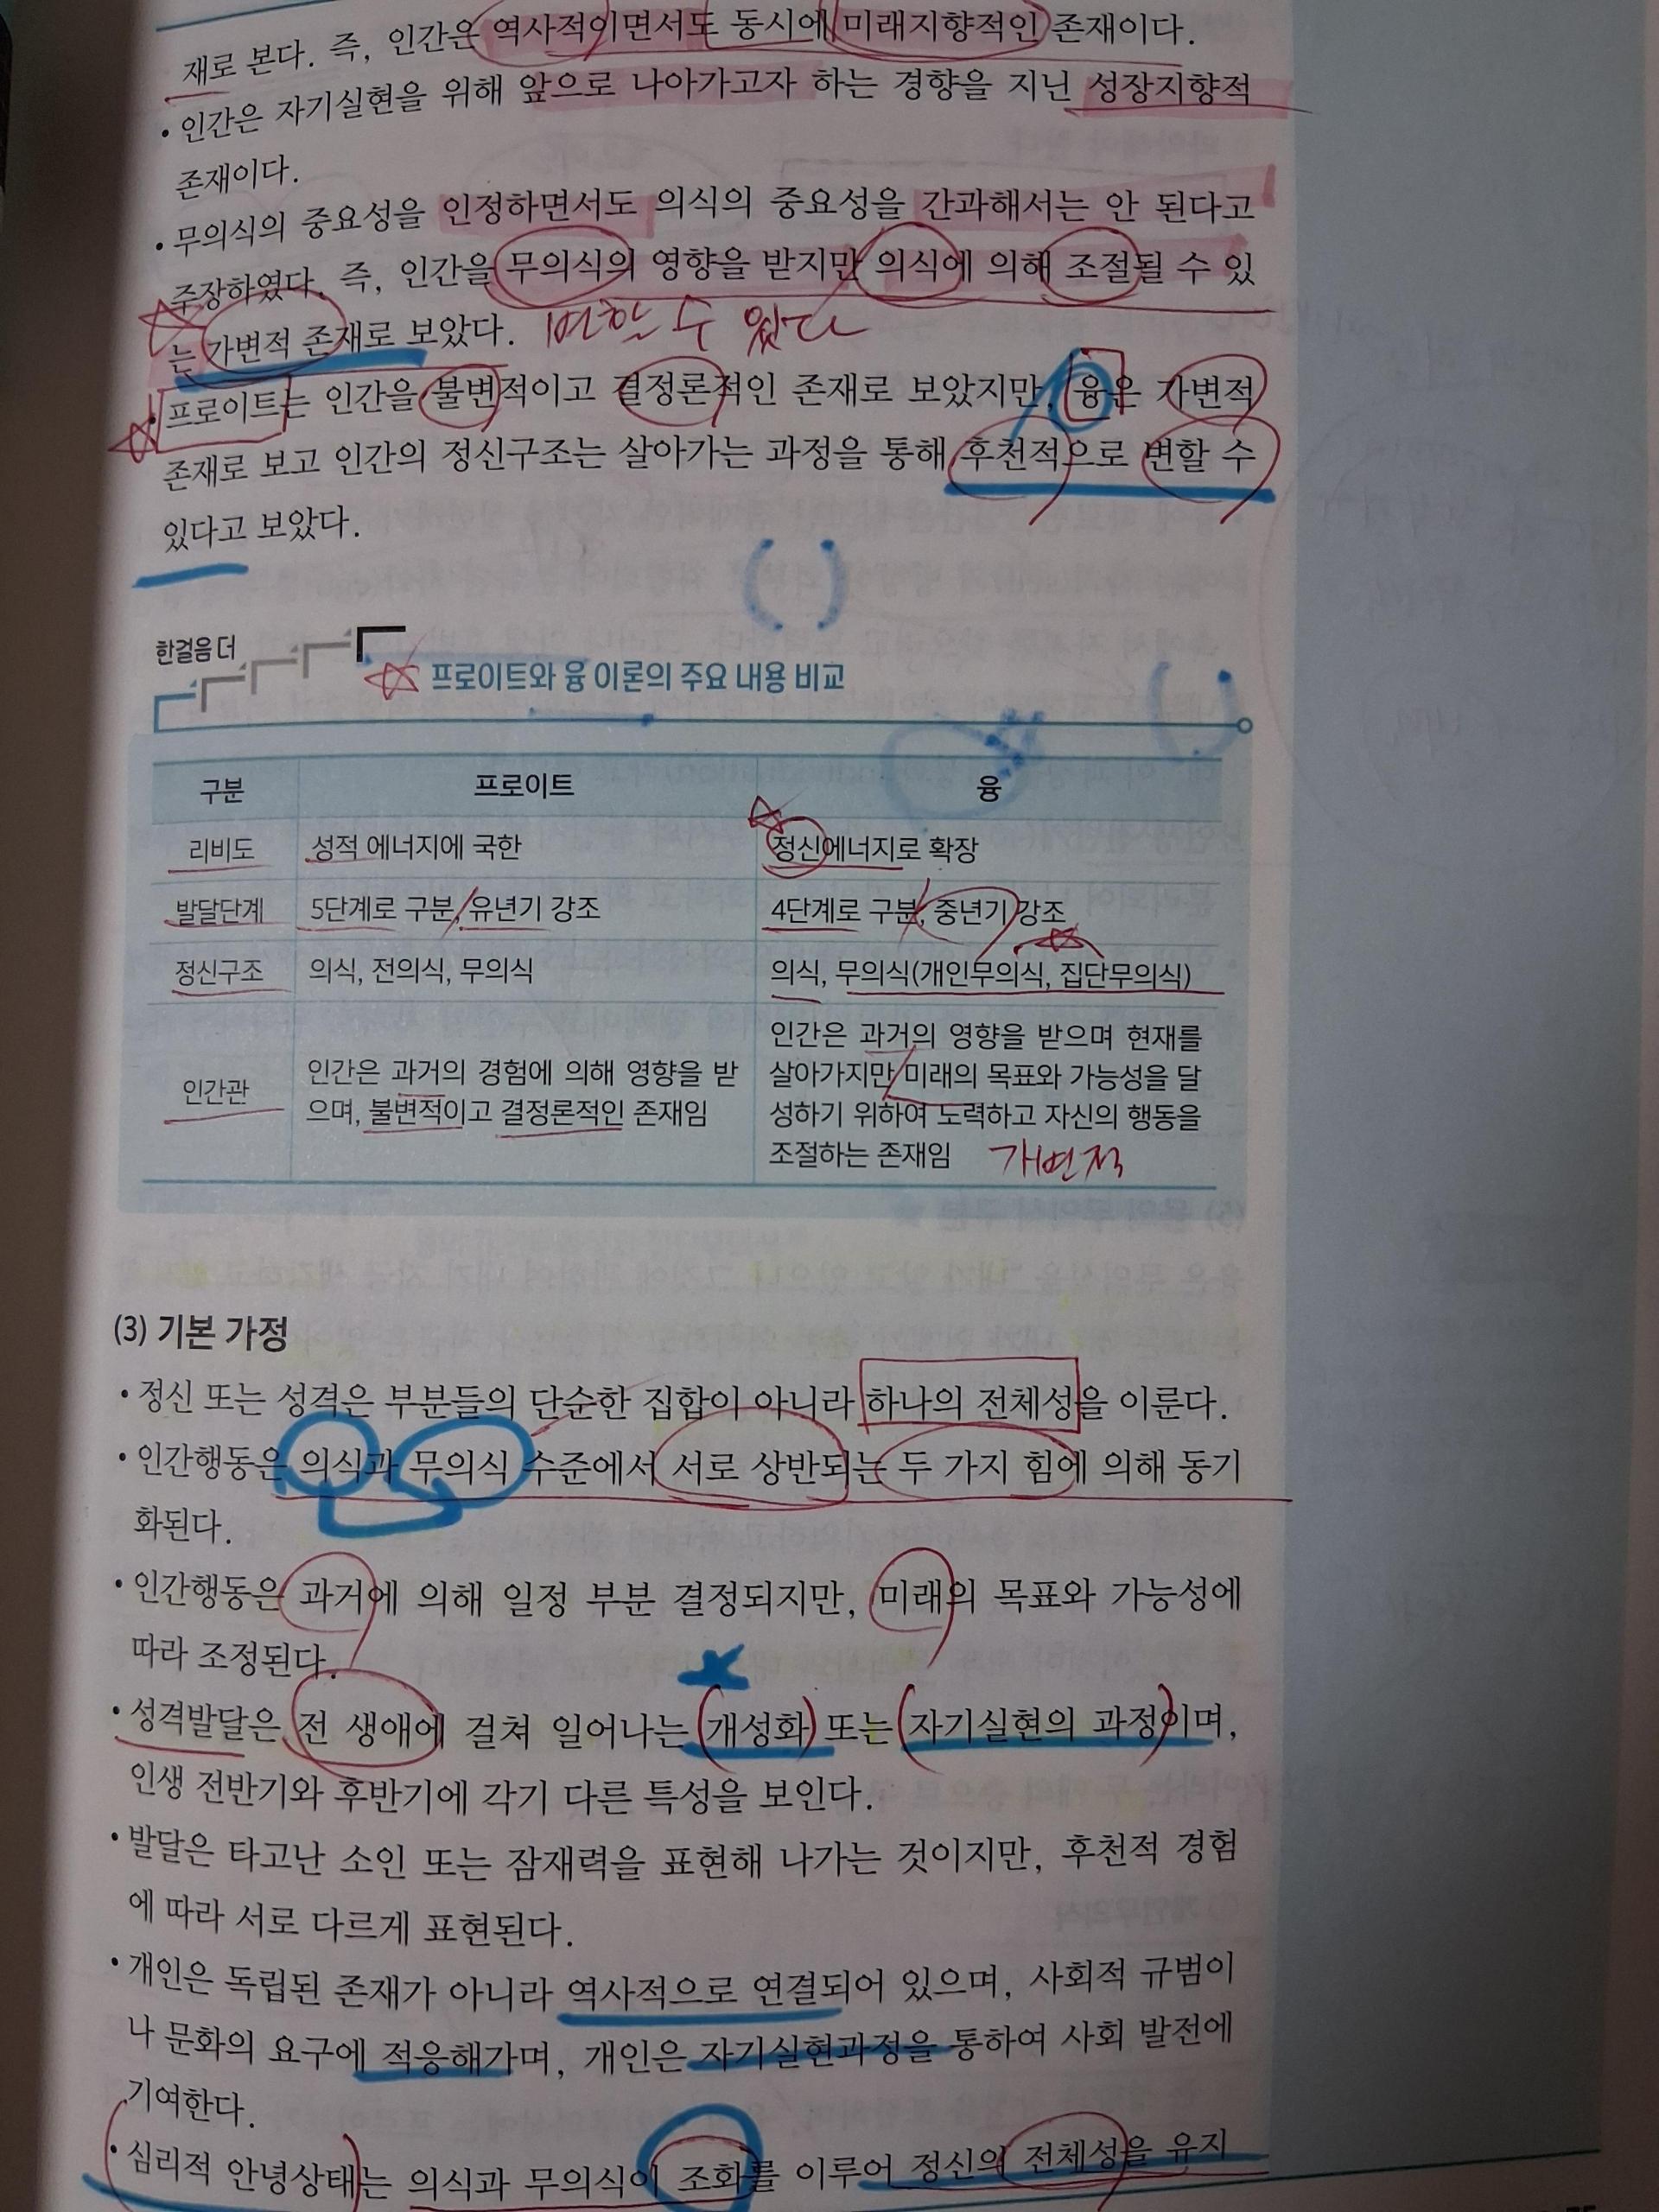 재로 본다. 즉, 인간은 역사적이면서도 동시에 미래지향적인 존재이다.
• 인간은 자기실현을 위해 앞으로 나아가고자 하는 경향을 지닌 성장지향적
존재이다.
• 무의식의 중요성을 인정하면서도 의식의 중요성을 간과해서는 안 된다고
주장하였다. 즉, 인간을 무의식의 영향을 받지만 의식에 의해 조절될 수 있
는 가변적 존재로 보았다. 변할 수 있다
• 프로이트는 인간을 불변적이고 결정론적인 존재로 보았지만, 융은 가변적
존재로 보고 인간의 정신구조는 살아가는 과정을 통해 후천적으로 변할 수
있다고 보았다.
한걸음 더
프로이트와 융 이론의 주요 내용 비교
구분 프로이트 융
리비도 성적 에너지에 국한 정신에너지로 확장
발달단계 5단계로 구분, 유년기 강조 4단계로 구분, 중년기 강조
정신구조 의식, 전의식, 무의식 의식, 무의식(개인무의식, 집단무의식)
인간관
인간은 과거의 경험에 의해 영향을 받
으며, 불변적이고 결정론적인 존재임
인간은 과거의 영향을 받으며 현재를
살아가지만 미래의 목표와 가능성을 달
성하기 위하여 노력하고 자신의 행동을
조절하는 존재임 가변적
(3) 기본 가정
• 정신 또는 성격은 부분들의 단순한 집합이 아니라 하나의 전체성을 이룬다.
• 인간행동은 의식과 무의식 수준에서 서로 상반되는 두 가지 힘에 의해 동기
화된다.
• 인간행동은 과거에 의해 일정 부분 결정되지만, 미래의 목표와 가능성에
따라 조정된다.
• 성격발달은 전 생애에 걸쳐 일어나는 개성화 또는 자기실현의 과정이며,
인생 전반기와 후반기에 각기 다른 특성을 보인다.
• 발달은 타고난 소인 또는 잠재력을 표현해 나가는 것이지만, 후천적 경험
에 따라 서로 다르게 표현된다.
• 개인은 독립된 존재가 아니라 역사적으로 연결되어 있으며, 사회적 규범이
나 문화의 요구에 적응해가며, 개인은 자기실현과정을 통하여 사회 발전에
기여한다.
• 심리적 안녕상태는 의식과 무의식이 조화를 이루어 정신의 전체성을 유지